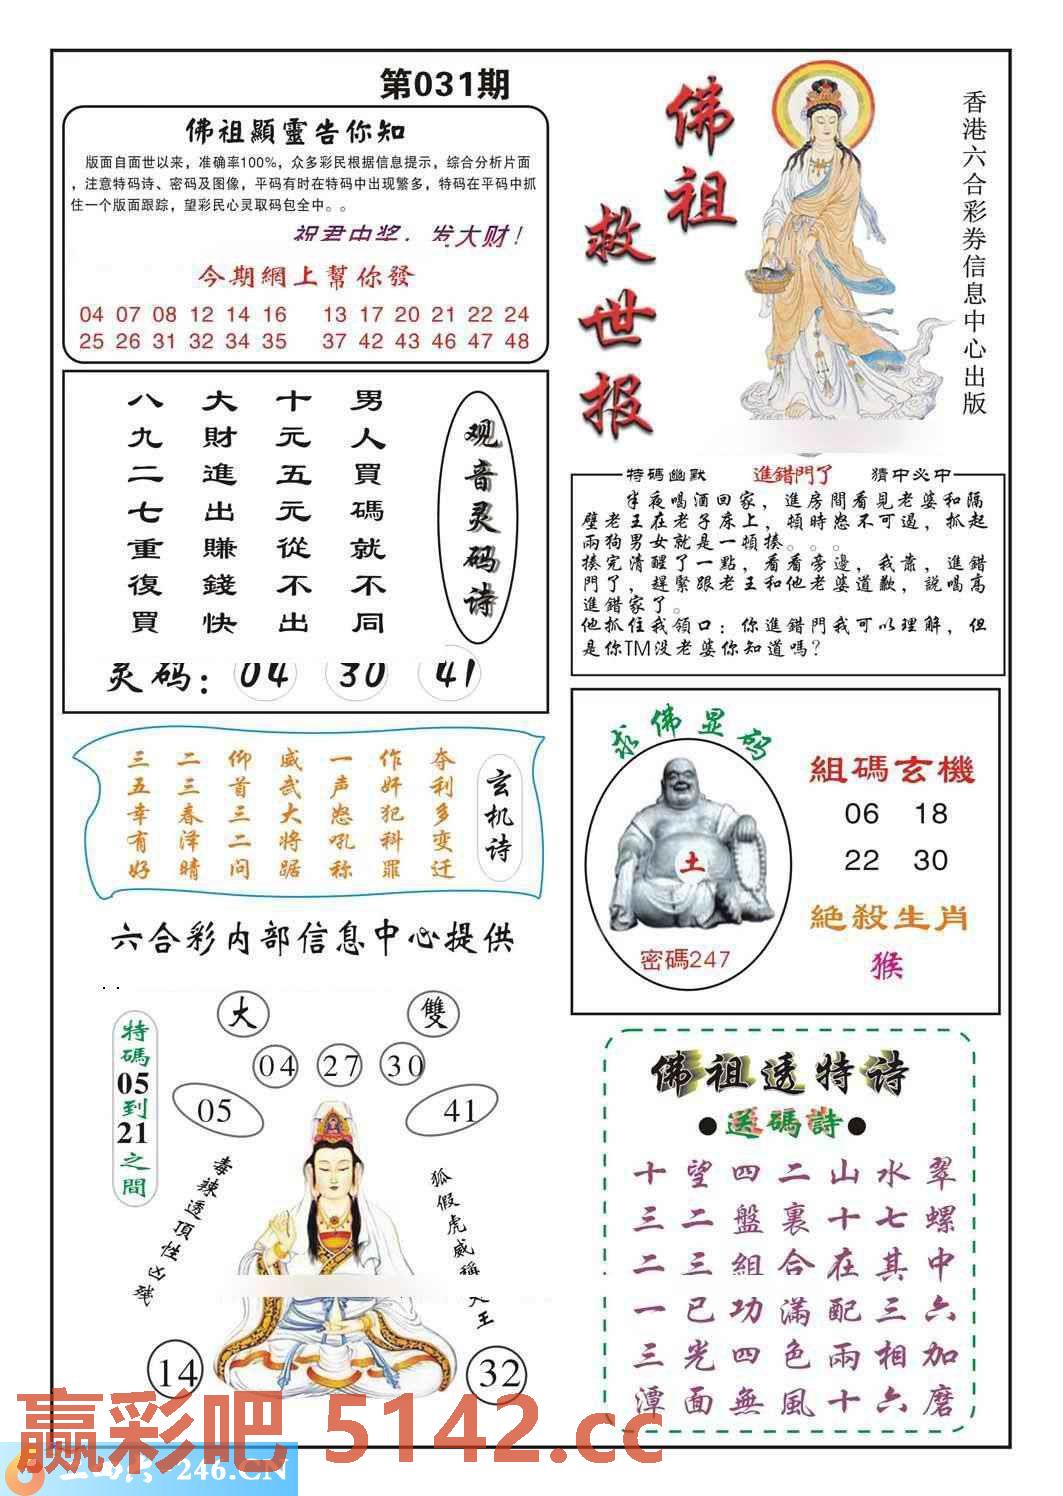 第031期
佛祖顯靈告你知
版面自面世以来，准确率100%，众多彩民根据信息提示，综合分析片面
，注意特码诗、密码及图像，平码有时在特码中出现繁多，特码在平码中抓
住一个版面跟踪，望彩民心灵取码包全中。。
祝君中奖，发大财！
今期網上幫你發
04 07 08 12 14 16 13 17 20 21 22 24
25 26 31 32 34 35 37 42 43 46 47 48
佛祖
救世报
香港六合彩券信息中心出版
观音灵码诗
男人買碼就不同
十元五元從不出
大財進出賺錢快
八九二七重復買
灵码：04 30 41
特碼幽默 進錯門了 猜中必中
半夜喝酒回家，進房間看見老婆和隔
壁老王在老子床上，頓時怒不可遏，抓起
兩狗男女就是一頓揍。。。
揍完清醒了一點，看看旁邊，我靠，進錯
門了，趕緊跟老王和他老婆道歉，説喝高
進錯家了。
他抓住我領口：你進錯門我可以理解，但
是你TM没老婆你知道嗎？
玄机诗
夺利多变迁
作奸犯科罪
一声怒吼称
威武大将踞
仰首三二问
二三春泽晴
三五幸有好
求佛显码
土
密碼247
組碼玄機
06 18
22 30
絶殺生肖
猴
六合彩内部信息中心提供
特碼05到21之間
大 雙
04 27 30
05 41
毒辣透頂性凶残
狐假虎威稱
王
14 32
佛祖透特诗
●送碼詩●
翠螺中六加磨
水七其三相六
山十在配兩十
二裏合滿色風
四盤組功四無
望二三已光面
十三二一三潭
赢彩吧 5142.cc
246.CN